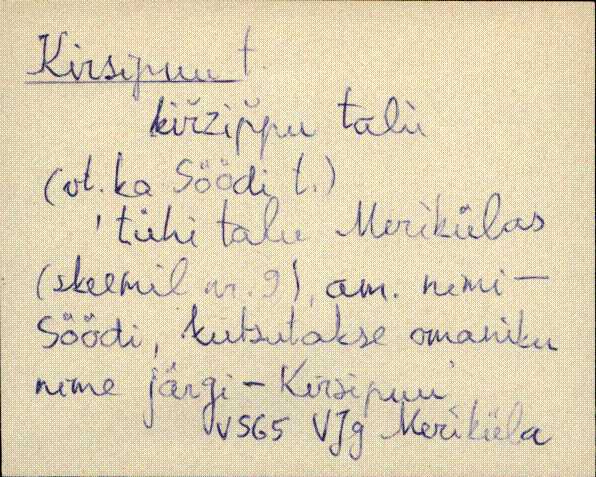 Kirsipuu t.
kiřzip̆pu talu
(vt. ka Söödi t.)
'tühi talu Merikülas
(skeemil nr. 9), am. nimi –
Söödi, kutsutakse omaniku
nime järgi – Kirsipuu'
VS65 VJg Meriküla